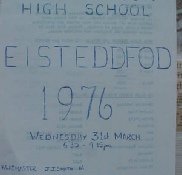 HIGH SCHOOL
EISTEDDFOD
1976
WEDNESDAY 31st MARCH